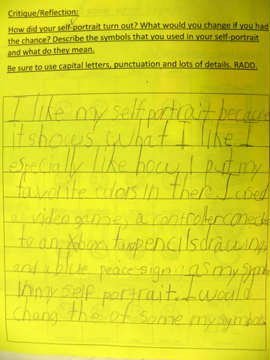 Critique/Reflection:
How did your self-portrait turn out? What would you change if you had
the chance? Describe the symbols that you used in your self-portrait
and what do they mean.
Be sure to use capital letters, punctuation and lots of details. RADD.
I like my self portrait because
it shows what I like. I
especially like how I put my
favorite colors in there. I used
a video games, a controler conected
to an xbox, pencils drawing,
and a blue peace sign as my symbols
in my self portrait. I would
chang the of some my symbols